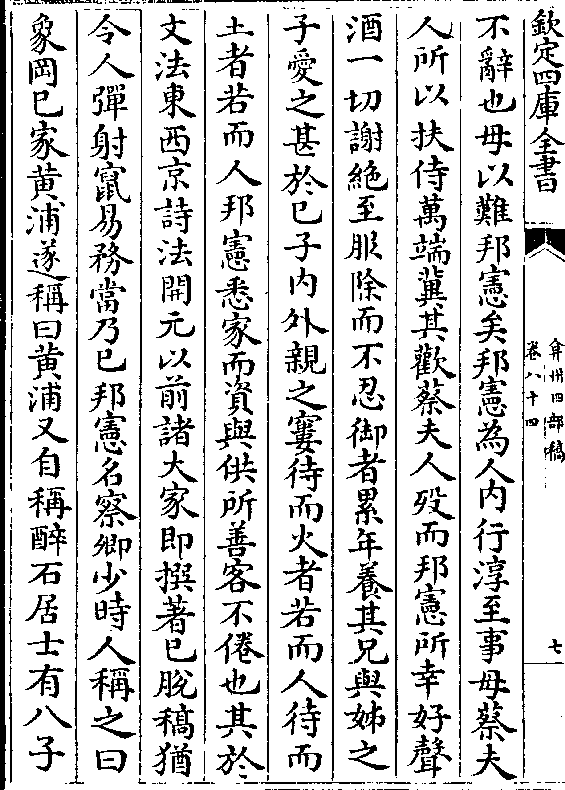 欽定四庫全書
弇州四部稿
卷八十四
七
不辭也毋以難邦憲矣邦憲為人内行淳至事母蔡夫
人所以扶侍萬端冀其歡蔡夫人歿而邦憲所幸好聲
酒一切謝絶至服除而不忍御者累年養其兄與姊之
子愛之甚於已子内外親之窶待而火者若而人待而
土者若而人邦憲悉家而資與供所善客不倦也其於
文法東西京詩法開元以前諸大家即撰著已脫稿猶
令人彈射竄易務當乃已邦憲名察卿少時人稱之曰
象岡已家黄浦遂稱曰黄浦又自稱醉石居士有八子